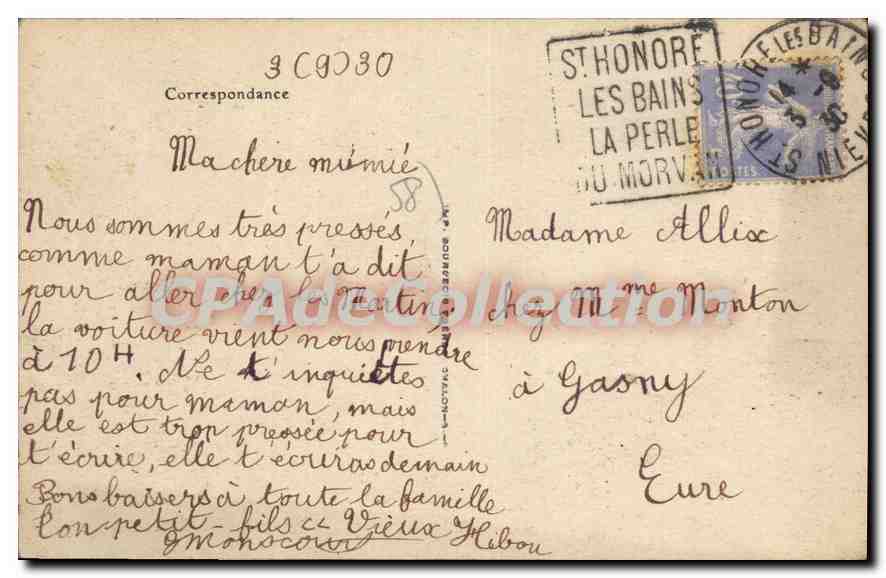 Correspondance
Ma chère mémé
58
Nous sommes très pressés,
comme maman t'a dit
pour aller chez les Martin,
la voiture vient nous prendre
à 10 H. Ne t'inquiètes
pas pour maman, mais
elle est trop pressée pour
t'écrire, elle t'écriras demain
Bons baisers à toute la famille
ton petit-fils
Vieux Hibou
ST HONORÉ
LES BAINS
LA PERLE
DU MORVAN
ST HONORE LES BAINS
NIEVRE
POSTES
Madame Allix
chez Mme Monton
à Gasny
Eure
CPAdeCollection